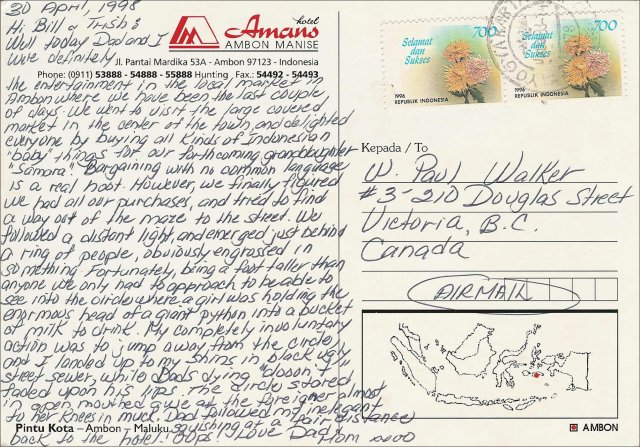 30 April, 1998
Hi Bill & Trish:
Well today Dad and I
were definitely
the entertainment in the local market in
Ambon where we have been the last couple
of days. We went to visit the large covered
market in the center of the town, and delighted
everyone by buying all kinds of Indonesian
"baby" things for our forthcoming granddaughter
"Samara". Bargaining with no common language
is a real hoot. However, we finally figured
we had all our purchases, and tried to find
a way out of the maze to the street. We
followed a distant light, and emerged just behind
a ring of people, obviously engrossed in
something. Fortunately, being a foot taller than
anyone we only had to approach to be able to
see into the circle where a girl was holding the
enormous head of a giant python into a bucket
of milk to drink. My completely involuntary
action was to jump away from the circle,
and I landed up to my shins in black ugly
street sewer, while Dads dying "dooon't"
faded upon his lips. The circle stared
in open mouthed gaze at the foreigner almost
to her knees in muck. Dad followed my inelegant
squishing at a fair distance
back to the hotel. Oops! Love Dad
Mom xoxo
hotel
Amans
AMBON MANISE
Jl. Pantai Mardika 53A - Ambon 97123 - Indonesia
Phone: (0911) 53888 - 54888 - 55888 Hunting Fax.: 54492 - 54493
Selamat
dan
Sukses
700
1996
REPUBLIK INDONESIA
Selamat
dan
Sukses
700
1996
REPUBLIK INDONESIA
Kepada / To
W. Paul Walker
#3-210 Douglas Street
Victoria, B.C.
Canada
AIRMAIL
Pintu Kota – Ambon – Maluku
AMBON